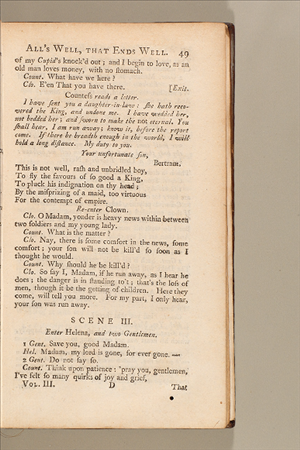 ALL'S WELL, THAT ENDS WELL. 49
of my Cupid's knock'd out; and I begin to love, as an
old man loves money, with no stomach.
Count. What have we here?
Clo. E'en That you have there. [Exit.
Countess reads a letter.
I have sent you a daughter-in-law: she hath reco-
vered the King, and undone me. I have wedded her,
not bedded her; and sworn to make the not eternal. You
shall hear, I am run away; know it, before the report
come. If there be breadth enough in the world, I will
hold a long distance. My duty to you.
Your unfortunate son,
Bertram.
This is not well, rash and unbridled boy,
To fly the favours of so good a King,
To pluck his indignation on thy head;
By the misprizing of a maid, too virtuous
For the contempt of empire.
Re-enter Clown.
Clo. O Madam, yonder is heavy news within between
two soldiers and my young lady.
Count. What is the matter?
Clo. Nay, there is some comfort in the news, some
comfort; your son will not be kill'd so soon as I
thought he would.
Count. Why should he be kill'd?
Clo. So say I, Madam, if he run away, as I hear he
does; the danger is in standing to't; that's the loss of
men, though it be the getting of children. Here they
come, will tell you more. For my part, I only hear,
your son was run away.
SCENE III.
Enter Helena, and two Gentlemen.
1 Gent. Save you, good Madam.
Hel. Madam, my lord is gone, for ever gone.—
2 Gent. Do not say so.
Count. Think upon patience: 'pray you, gentlemen,
I've felt so many quirks of joy and grief,
VOL. III. D That